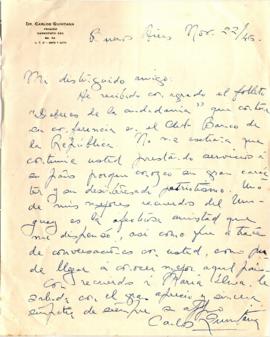 DR. CARLOS QUINTANA
Buenos Aires Nov. 22/45.
Mi distinguido amigo:
He recibido con agrado el folleto
"Deberes de la ciudadanía" que contiene
su conferencia en el Club Banco de
la República. No me extraña que
continúe usted prestando servicios a
su país porque conozco su gran carác-
ter y su desinteresado patriotismo. Uno
de mis mejores recuerdos del Uru-
guay es la afectuosa amistad que
me dispensó, así como que a través
de conversaciones con usted, como pu-
de llegar a conocer mejor aquel país.
Con recuerdos a María Elvira, le
saluda con el gran aprecio y sincera
simpatía de siempre su affmo.
Carlos Quintana